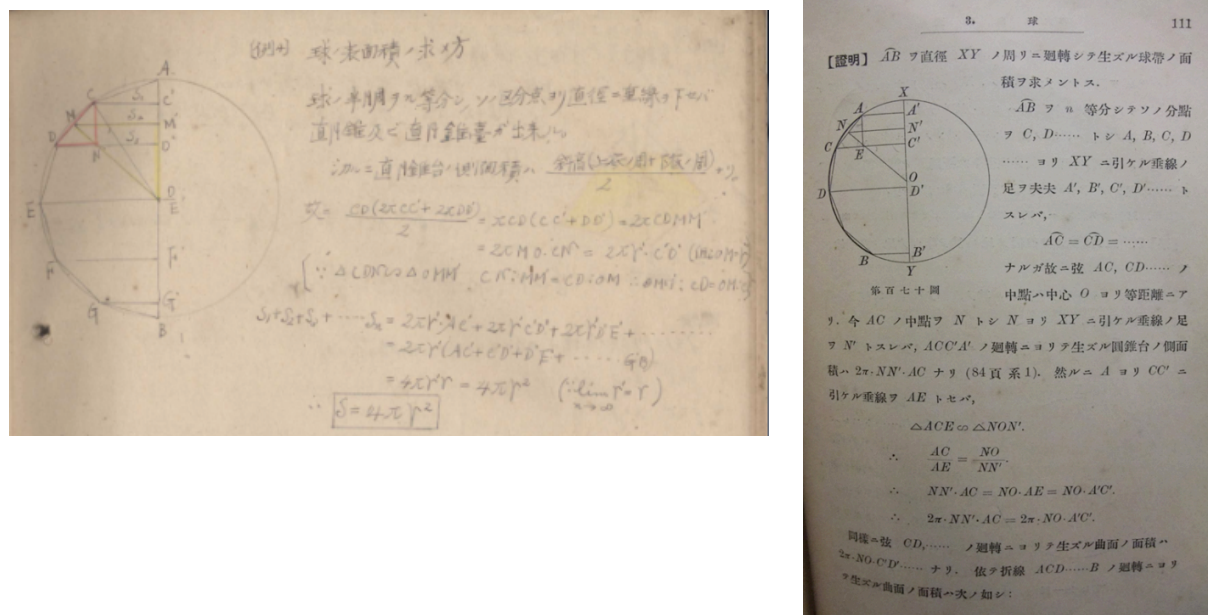 [例4] 球ノ表面積ノ求メ方
球ノ半周ヲn等分シ、ソノ区分点ヨリ直径ニ垂線ヲ下セバ
直円錐及ビ直円錐臺ガ出来ル。
直円錐台ノ側面積ハ
2
CD(2πCC'+2πDD')
2
= πCD(CC'+DD') = 2πCDMM'
= 2πMO·C'D' = 2πr'·C'D'
∵ △CDN∽△OMM'
S₁+S₂+S₃+……Sₙ = 2πr'AC'+2πr'C'D'+2πr'D'E'+………
= 2πr'(AC'+C'D'+D'E'+……G'B)
= 4πr'r = 4πr² (∵lim r'=r)
n→∞
∴ S=4πr²
A
C
S₁
C'
M
S₂
M'
D
N
D'
O
E
E'
F
F'
G
G'
B
3. 球 111
【證明】 AB ヲ直徑 XY ノ周リニ廻轉シテ生ズル球帶ノ面
積ヲ求メントス.
AB ヲ n 等分シテソノ分點
ヲ C, D…… トシ A, B, C, D
…… ヨリ XY ニ引ケル垂線ノ
足ヲ夫夫 A', B', C', D'…… ト
スレバ,
AC = CD = ……
ナルガ故ニ弦 AC, CD…… ノ
中點ハ中心 O ヨリ等距離ニア
リ. 今 AC ノ中點ヲ N トシ N ヨリ XY ニ引ケル垂線ノ足
ヲ N' トスレバ, ACC'A' ノ廻轉ニヨリテ生ズル圓錐台ノ側面
積ハ 2π·NN'·AC ナリ (84頁 系1). 然ルニ A ヨリ CC' ニ
引ケル垂線ヲ AE トセバ,
△ACE∽△NON'.
∴ AC/AE = NO/NN'.
∴ NN'·AC = NO·AE = NO·A'C'.
∴ 2π·NN'·AC = 2π·NO·A'C'.
同樣ニ弦 CD,…… ノ廻轉ニヨリテ生ズル曲面ノ面積ハ
2π·NO·C'D'…… ナリ. 依テ折線 ACD……B ノ廻轉ニヨリ
テ生ズル曲面ノ面積ハ次ノ如シ:
X
A
A'
N
N'
C
C'
E
O
D
D'
B
B'
Y
第百七十圖